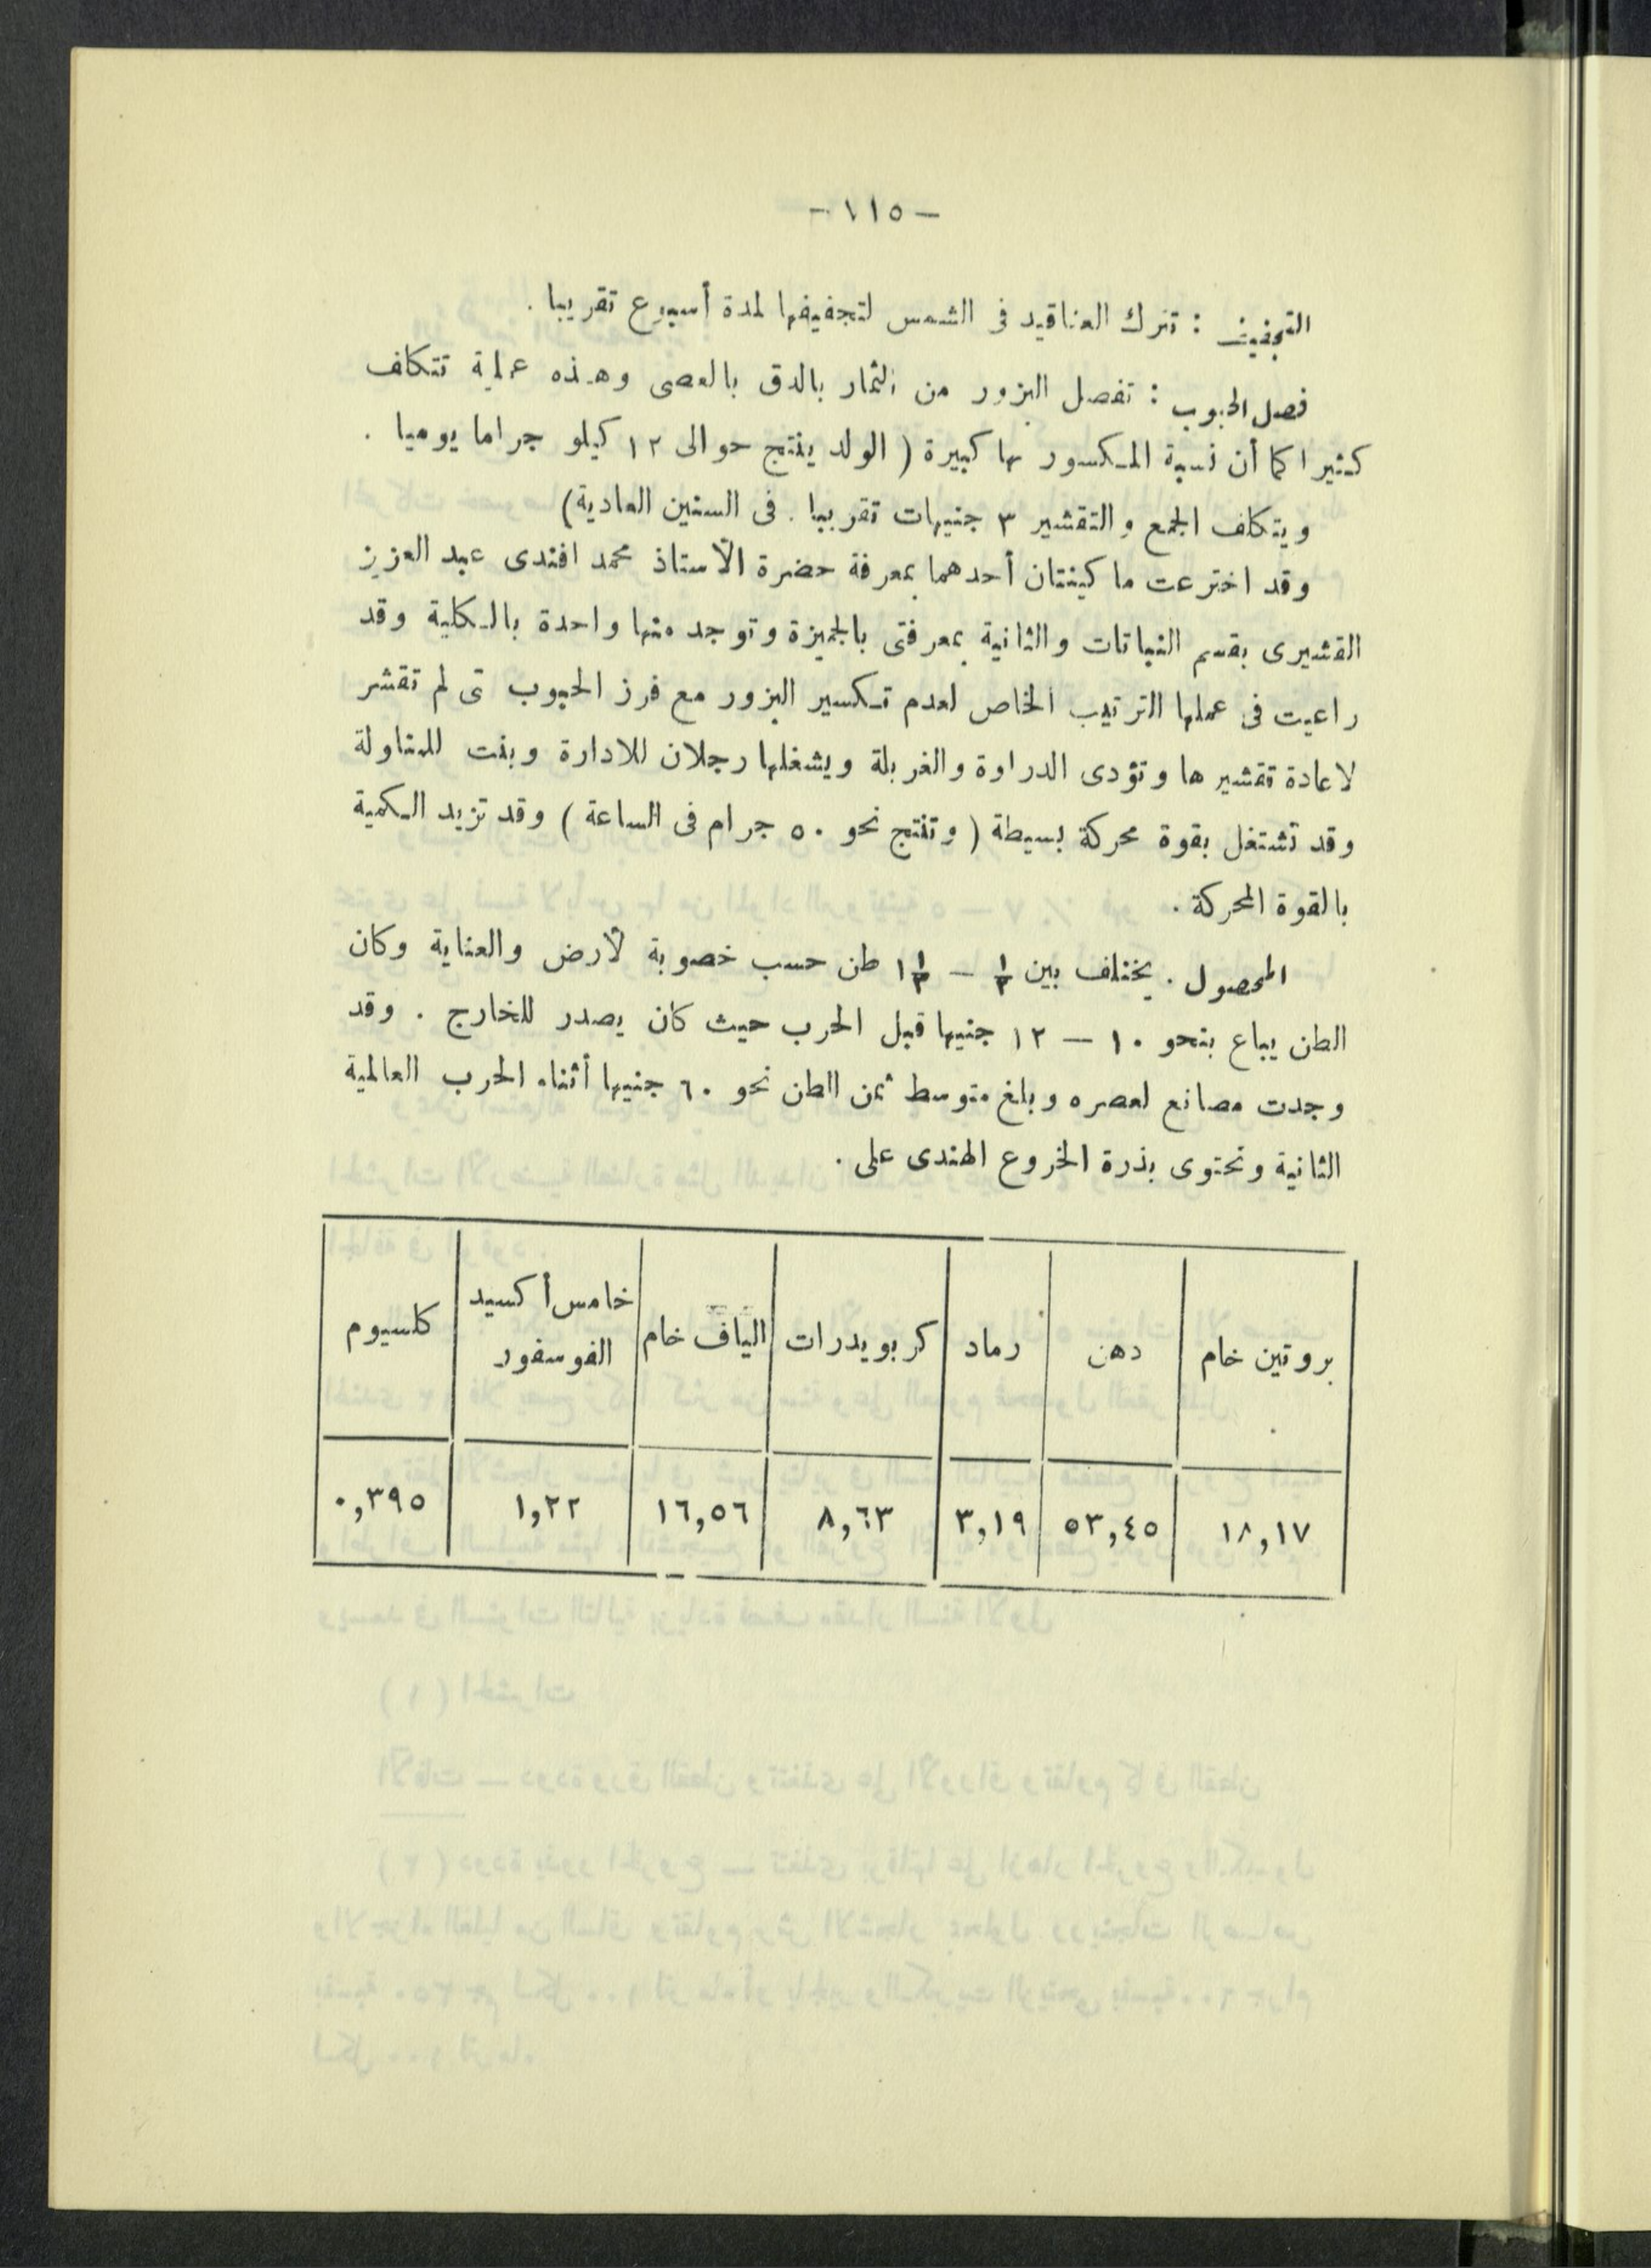 — ١١٥ —
التجفيف : تترك العناقيد فى الشمس لتجفيفها لمدة أسبوع تقريبا .
فصل الحبوب : تفصل البزور من الثمار بالدق بالعصى وهذه عملية تتكلف
كثيرا كما أن نسبة المكسور بها كبيرة ( الولد ينتج حوالى ١٢ كيلو جراما يوميا .
ويتكلف الجمع والتقشير ٣ جنيهات تقريبا . فى السنين العادية )
وقد اخترعت ما كينتان أحدهما بمعرفة حضرة الأستاذ محمد افندى عبد العزيز
القشيرى بقسم النباتات والثانية بمعرفتى بالجيزة وتوجد منها واحدة بالكلية وقد
راعيت فى عملها الترتيب الخاص لعدم تكسير البزور مع فرز الحبوب تى لم تقشر
لاعادة تقشيرها وتؤدى الدراوة والغربلة ويشغلها رجلان للادارة وبنت للمناولة
وقد تشتغل بقوة محركة بسيطة ( وتنتج نحو ٥٠ جرام فى الساعة ) وقد تزيد الكمية
بالقوة المحركة .
المحصول . يختلف بين ١/٢ — ١ ١/٢ طن حسب خصوبة لأرض والعناية وكان
الطن يباع بنحو ١٠ — ١٢ جنيها قبل الحرب حيث كان يصدر للخارج . وقد
وجدت مصانع لعصره وبلغ متوسط ثمن الطن نحو ٦٠ جنيها أثناء الحرب العالمية
الثانية وتحتوى بذرة الخروع الهندى على .
بروتين خام دهن رماد كربويدرات الياف خام خامس أكسيد الفوسفور كلسيوم
١٨,١٧ ٥٣,٤٥ ٣,١٩ ٨,٦٣ ١٦,٥٦ ١,٢٢ ٠,٣٩٥